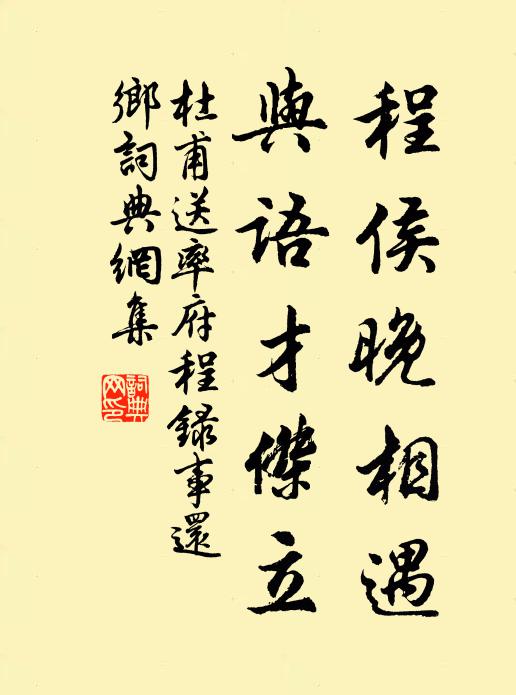 程侯晚相遇
與語才傑立
杜甫送率府程錄事還
鄉詞典網集
詞典
网印